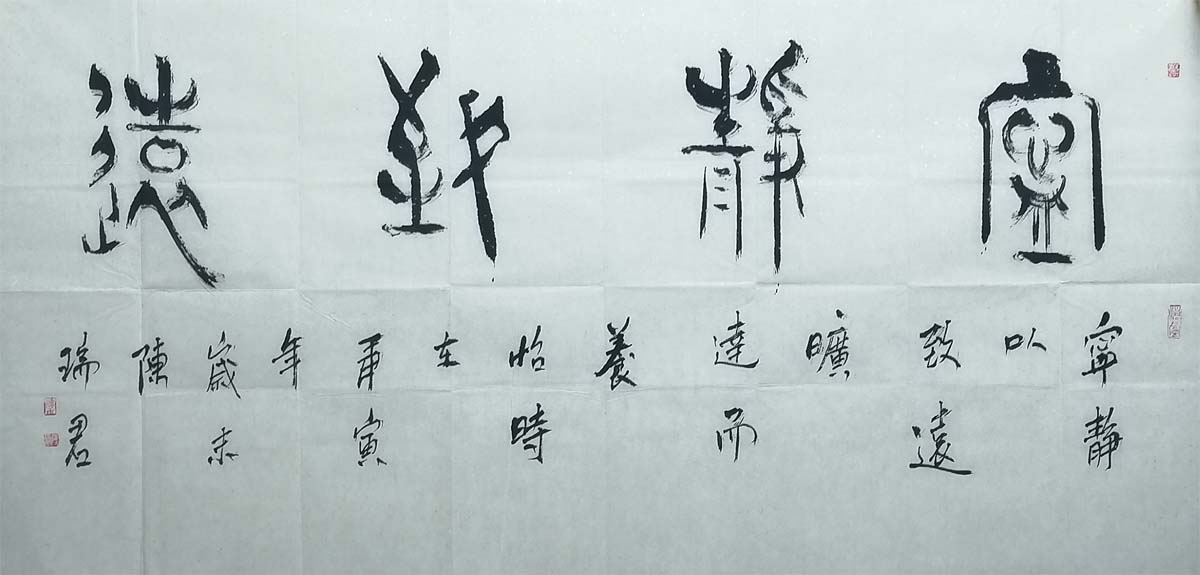 寧靜致遠
寧靜
以
致遠
曠
達而
養
怡時
在
庚寅
年
歲末
陳
瑞君